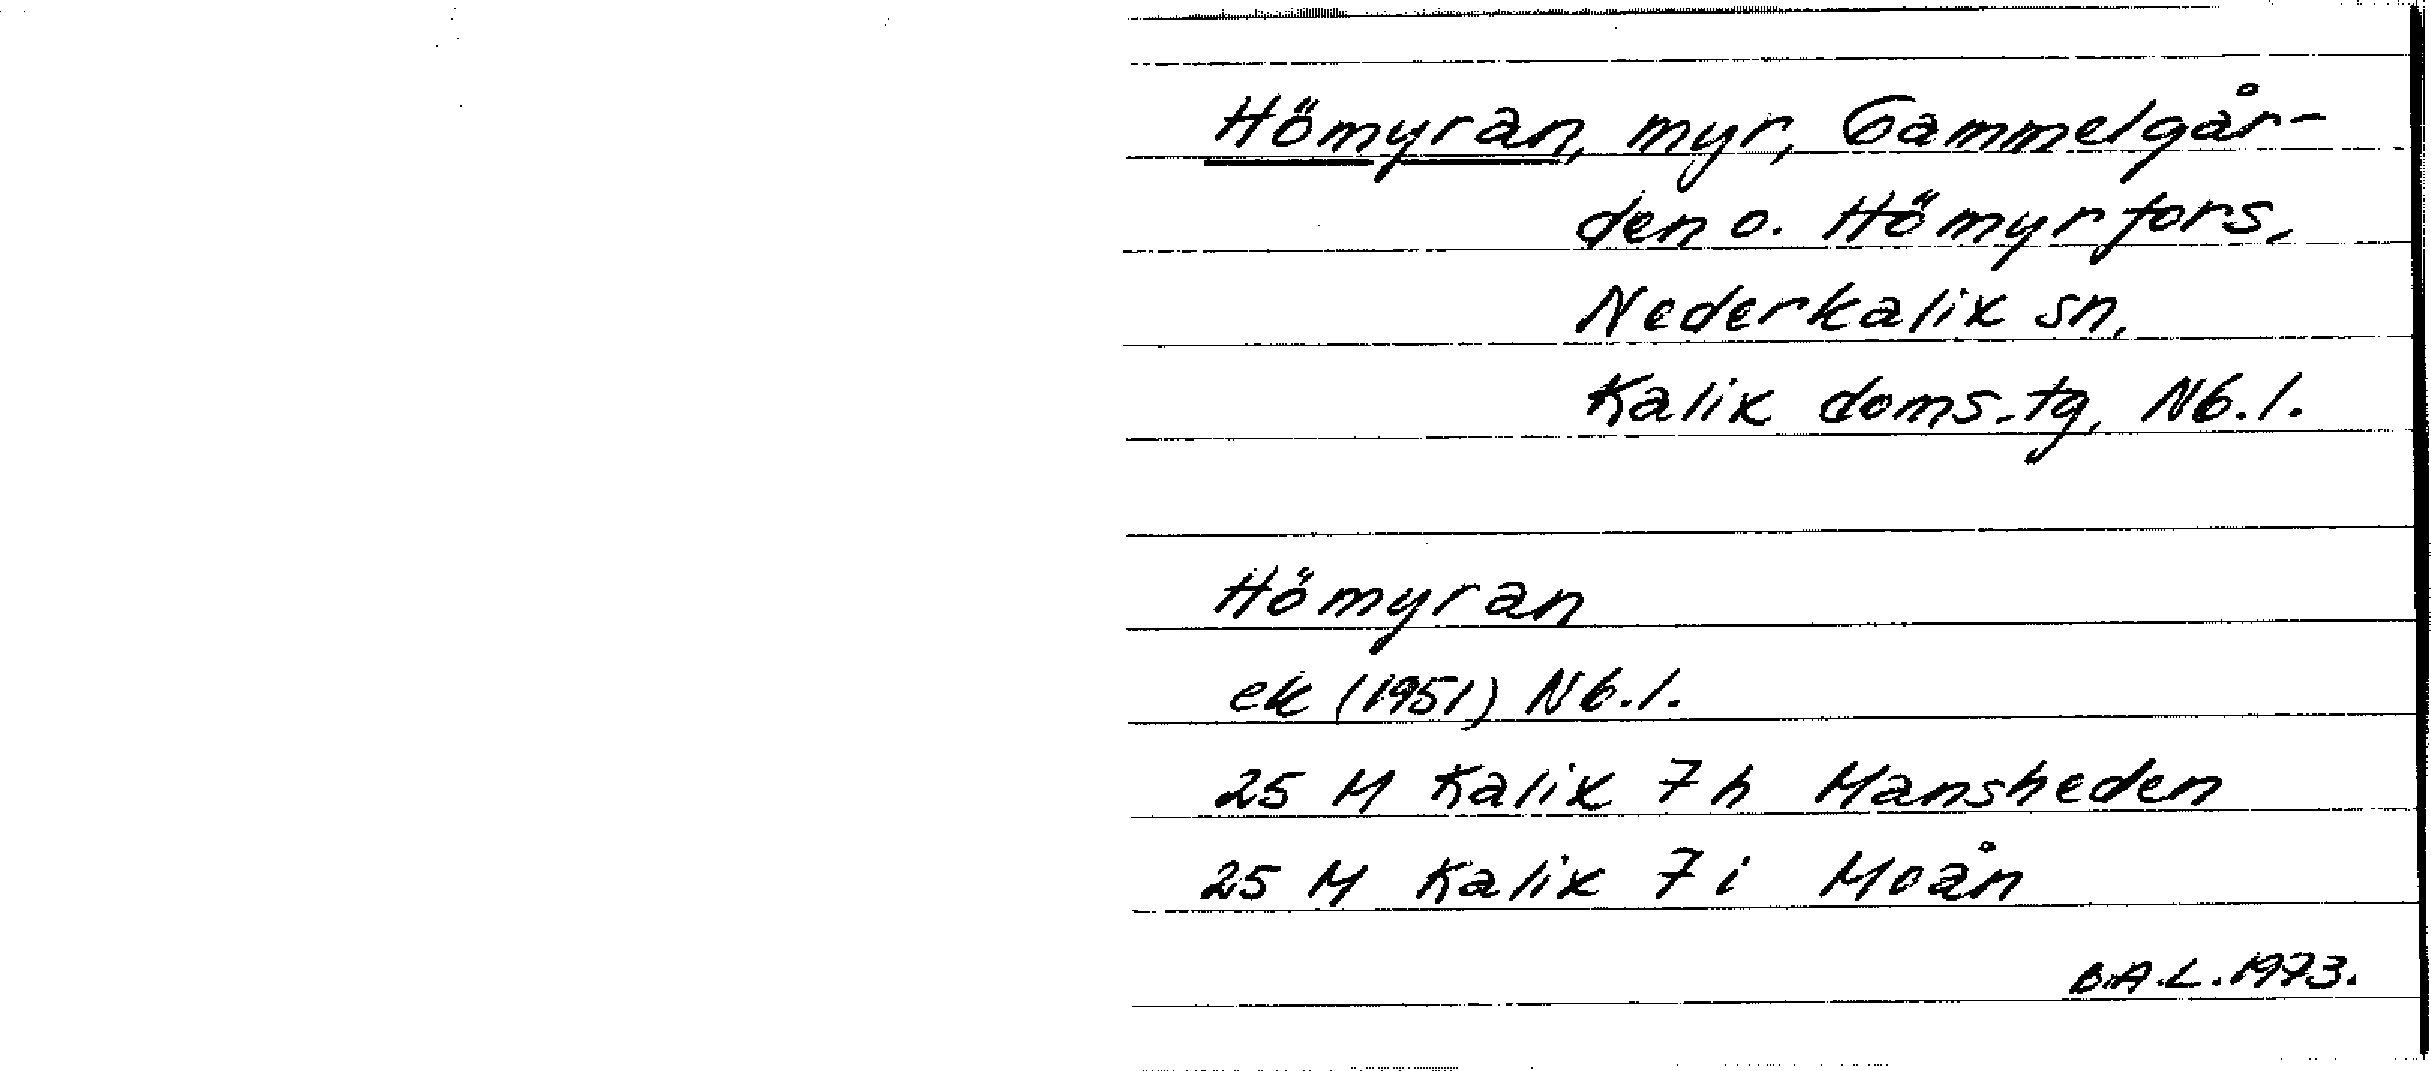 Hömyran, myr, Gammelgår-
den o. Hömyrfors,
Nederkalix sn,
Kalix doms.tg, Nb.l.
Hömyran
ek (1951) Nb.l.
25 M Kalix 7h Mansheden
25 M Kalix 7i Moån
B.A.L. 1973.